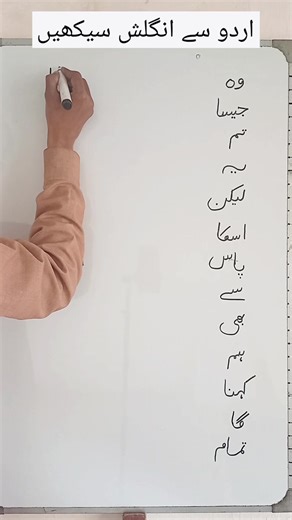 اردو سے انگلش سیکھیں
وہ
جیسا
تم
یہ
لیکن
اسکا
پاس
سے
بھی
ہم
کہنا
گا
تمام